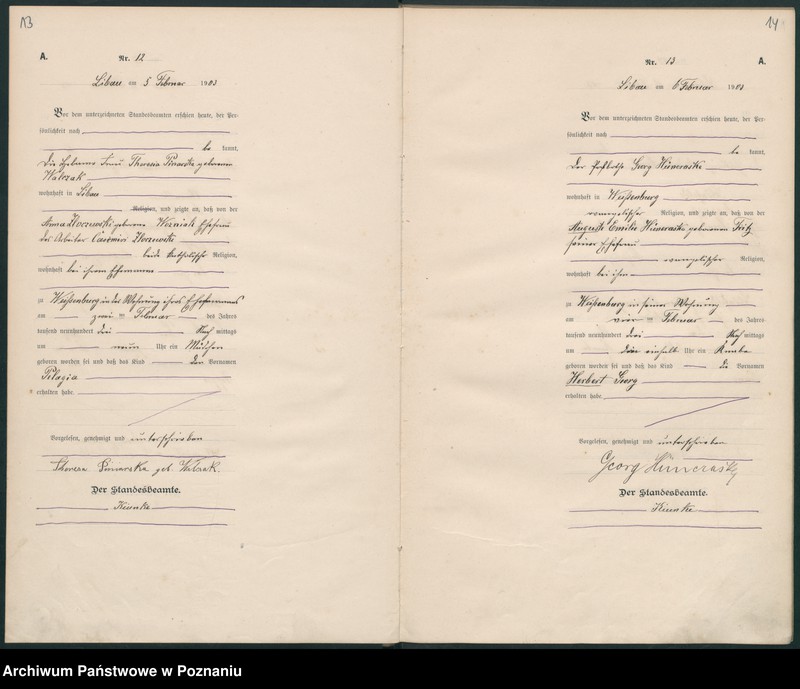 13
A.
Nr. 12
Libau am 5 Februar 1903
Vor dem unterzeichneten Standesbeamten erschien heute, der Per-
sönlichkeit nach
be kannt,
die Hebamme Frau Theresia geborene
Walczak
wohnhaft in Libau
Religion, und zeigte an, daß von der
Anna geborene Ehefrau
des Arbeiter Casimir
beide katholischer Religion,
wohnhaft bei ihrem Ehemanne
zu Weißenburg in der Wohnung ihres Ehemannes
am zwei ten Februar des Jahres
tausend neunhundert drei Nach mittags
um neun Uhr ein Mädchen
geboren worden sei und daß das Kind den Vornamen
Pelagia
erhalten habe.
Vorgelesen, genehmigt und unterschrieben
geb. Walczak.
Der Standesbeamte.
14
Nr. 13
A.
Libau am 6 Februar 1903
Vor dem unterzeichneten Standesbeamten erschien heute, der Per-
sönlichkeit nach
be kannt,
der Georg
wohnhaft in Weißenburg
evangelischer Religion, und zeigte an, daß von der
Auguste Emilie geborenen
seiner Ehefrau
evangelischer Religion,
wohnhaft bei ihm
zu Weißenburg in seiner Wohnung
am vier ten Februar des Jahres
tausend neunhundert drei Nach mittags
um einhalb Uhr ein Knabe
geboren worden sei und daß das Kind die Vornamen
Herbert Georg
erhalten habe.
Vorgelesen, genehmigt und unterschrieben
Georg
Der Standesbeamte.
Archiwum Państwowe w Poznaniu